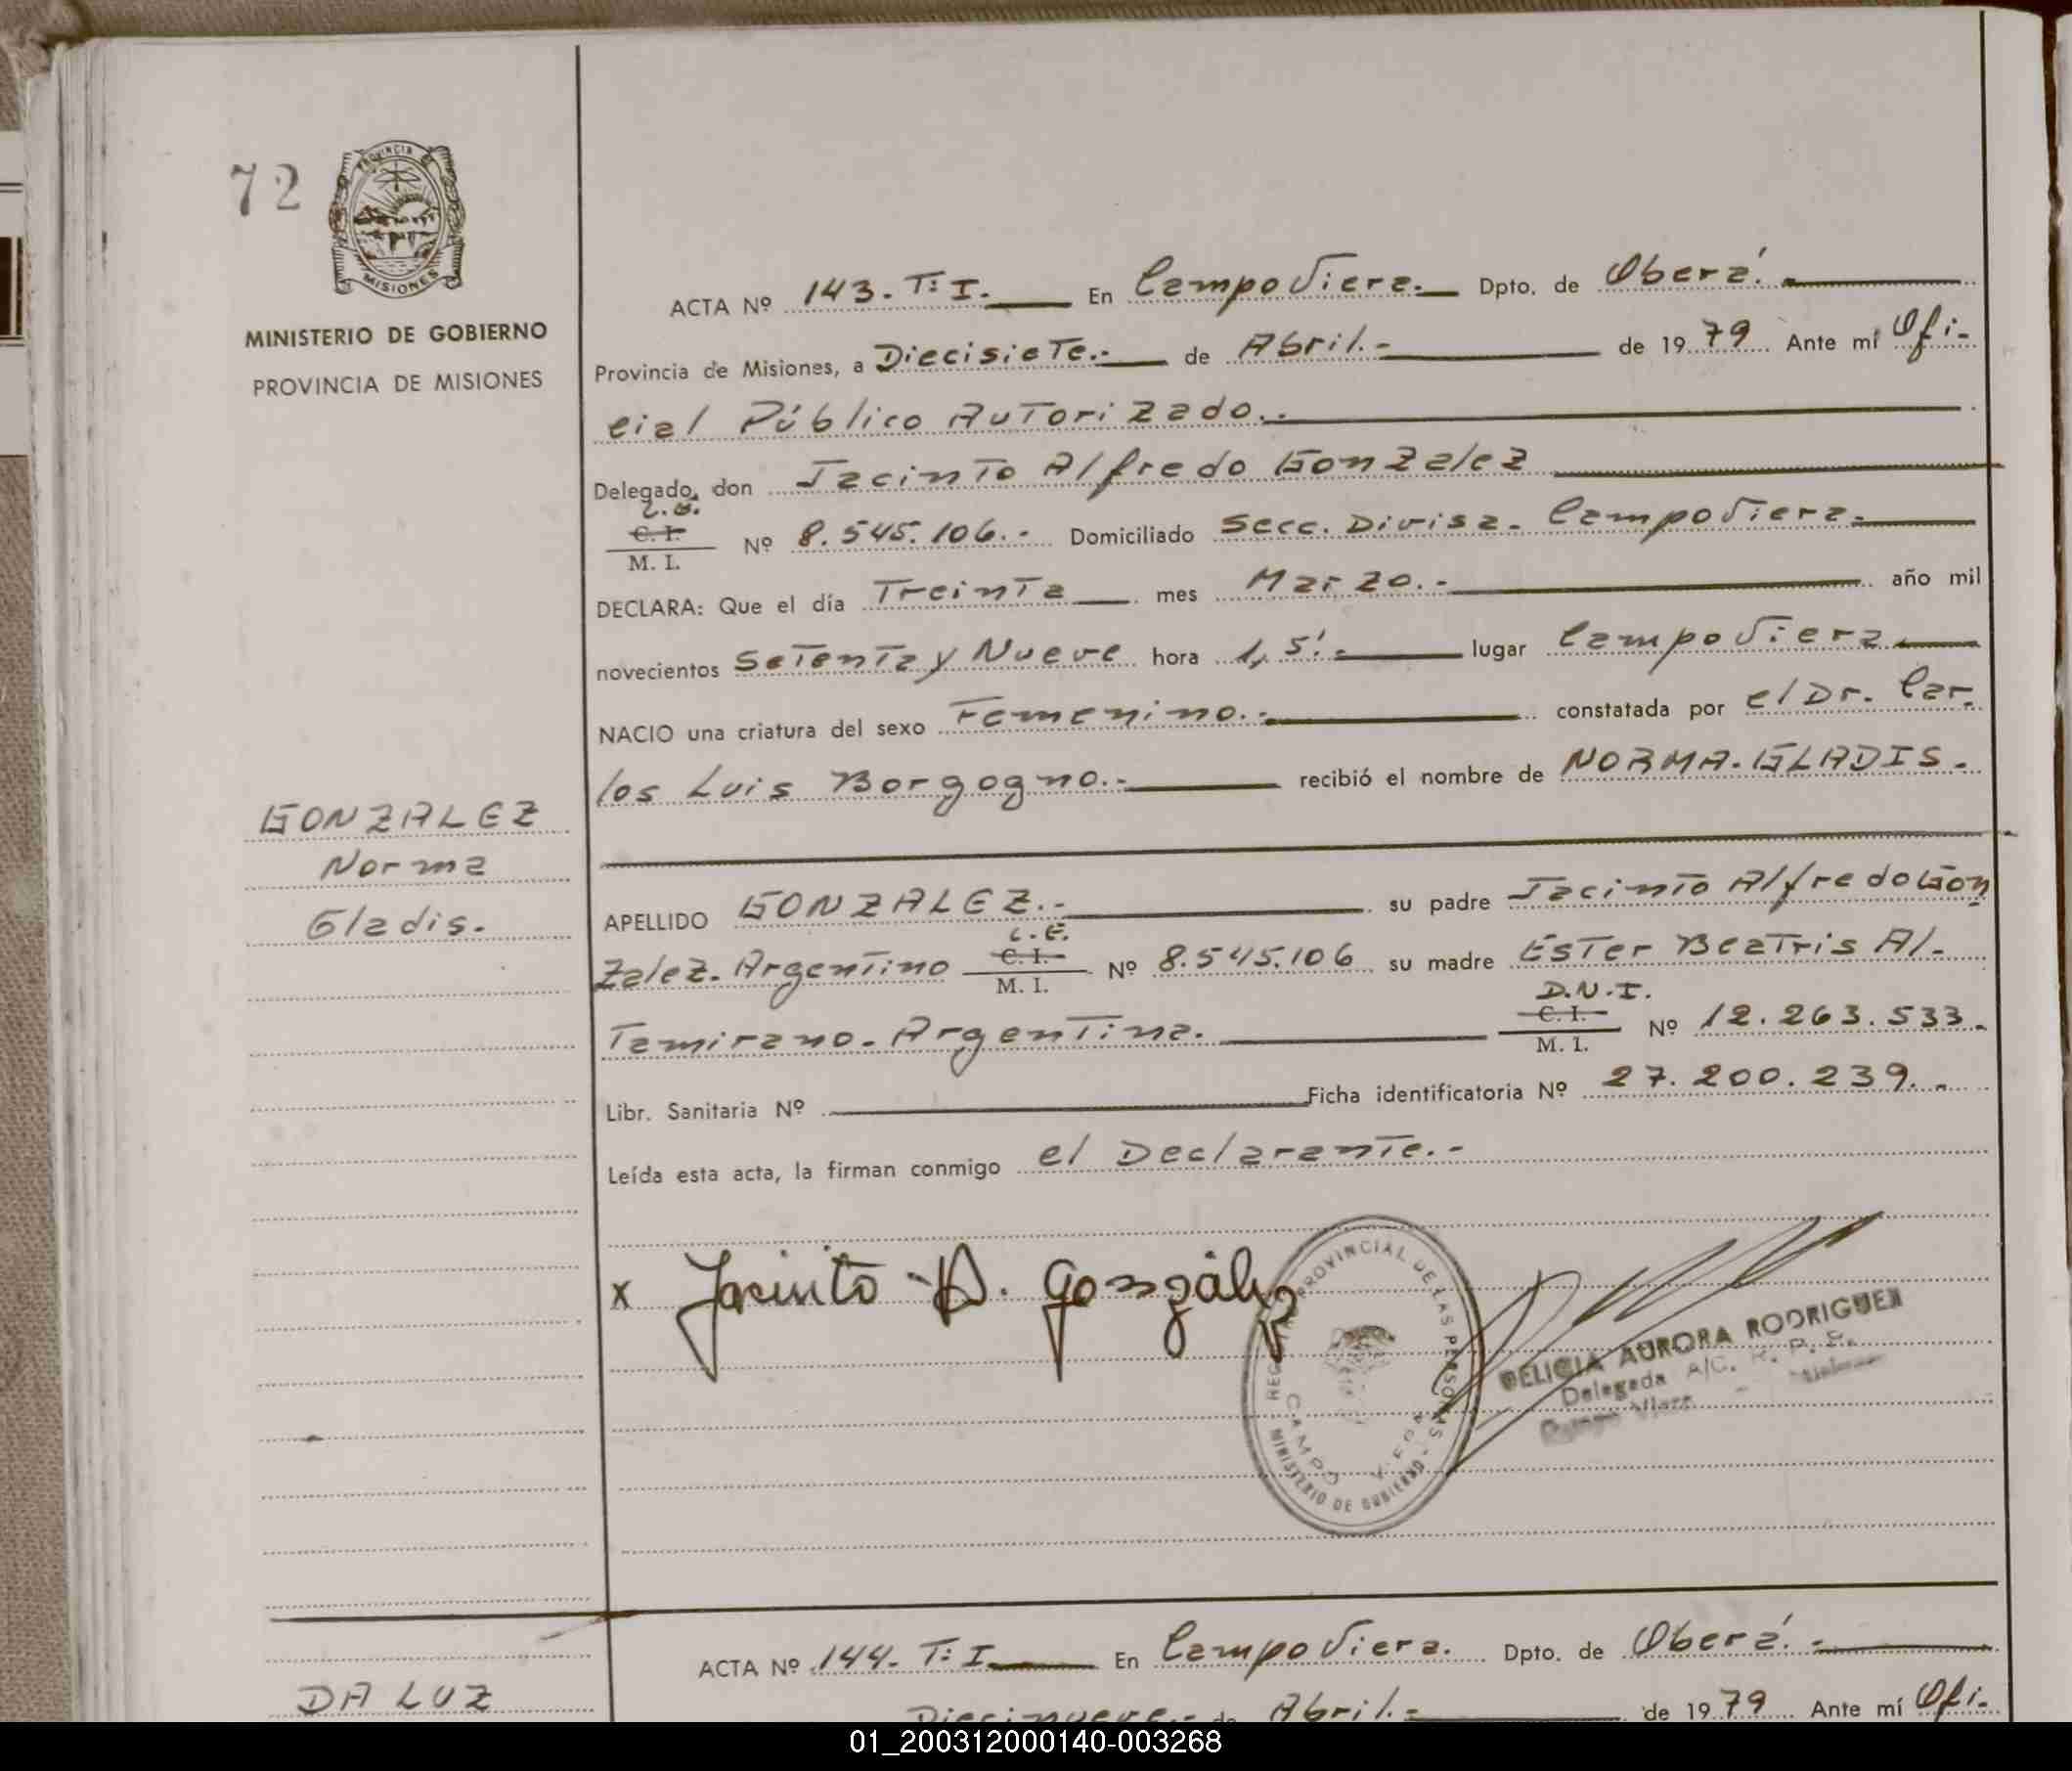 72
PROVINCIA DE
MISIONES
MINISTERIO DE GOBIERNO
PROVINCIA DE MISIONES
ACTA Nº 143. T: I. En Campo Viera. Dpto. de Oberá.
Provincia de Misiones, a Diecisiete.- de Abril.- de 1979 Ante mí Ofi-
cial Público Autorizado.-
Delegado, don Jacinto Alfredo Gonzalez
L.E.
C. I.
M. I. Nº 8.545.106.- Domiciliado Secc. Divisa. Campo Viera.
DECLARA: Que el día Treinta mes Marzo.- año mil
novecientos Setenta y Nueve hora 1,5'.- lugar Campo Viera
NACIO una criatura del sexo Femenino.- constatada por el Dr. Car-
los Luis Borgogno.- recibió el nombre de NORMA. GLADIS.
GONZALEZ
Norma
Gladis.
APELLIDO GONZALEZ.- su padre Jacinto Alfredo Gon
zalez. Argentino L.E. C. I. M. I. Nº 8.545.106 su madre Ester Beatris Al-
tamirano. Argentina. D.N.I. C. I. M. I. Nº 12.263.533.
Libr. Sanitaria Nº Ficha identificatoria Nº 27.200.239.-
Leída esta acta, la firman conmigo el Declarante.-
x Jacinto A. González
REGISTRO PROVINCIAL DE LAS PERSONAS
CAMPO VIERA
MINISTERIO DE GOBIERNO
DELICIA AURORA RODRIGUEZ
Delegada A/C. R. P. P.
Campo Viera
ACTA Nº 144. T: I. En Campo Viera. Dpto. de Oberá.-
DA LUZ
Diecinueve.- de Abril.- de 1979 Ante mí Ofi-
01_200312000140-003268